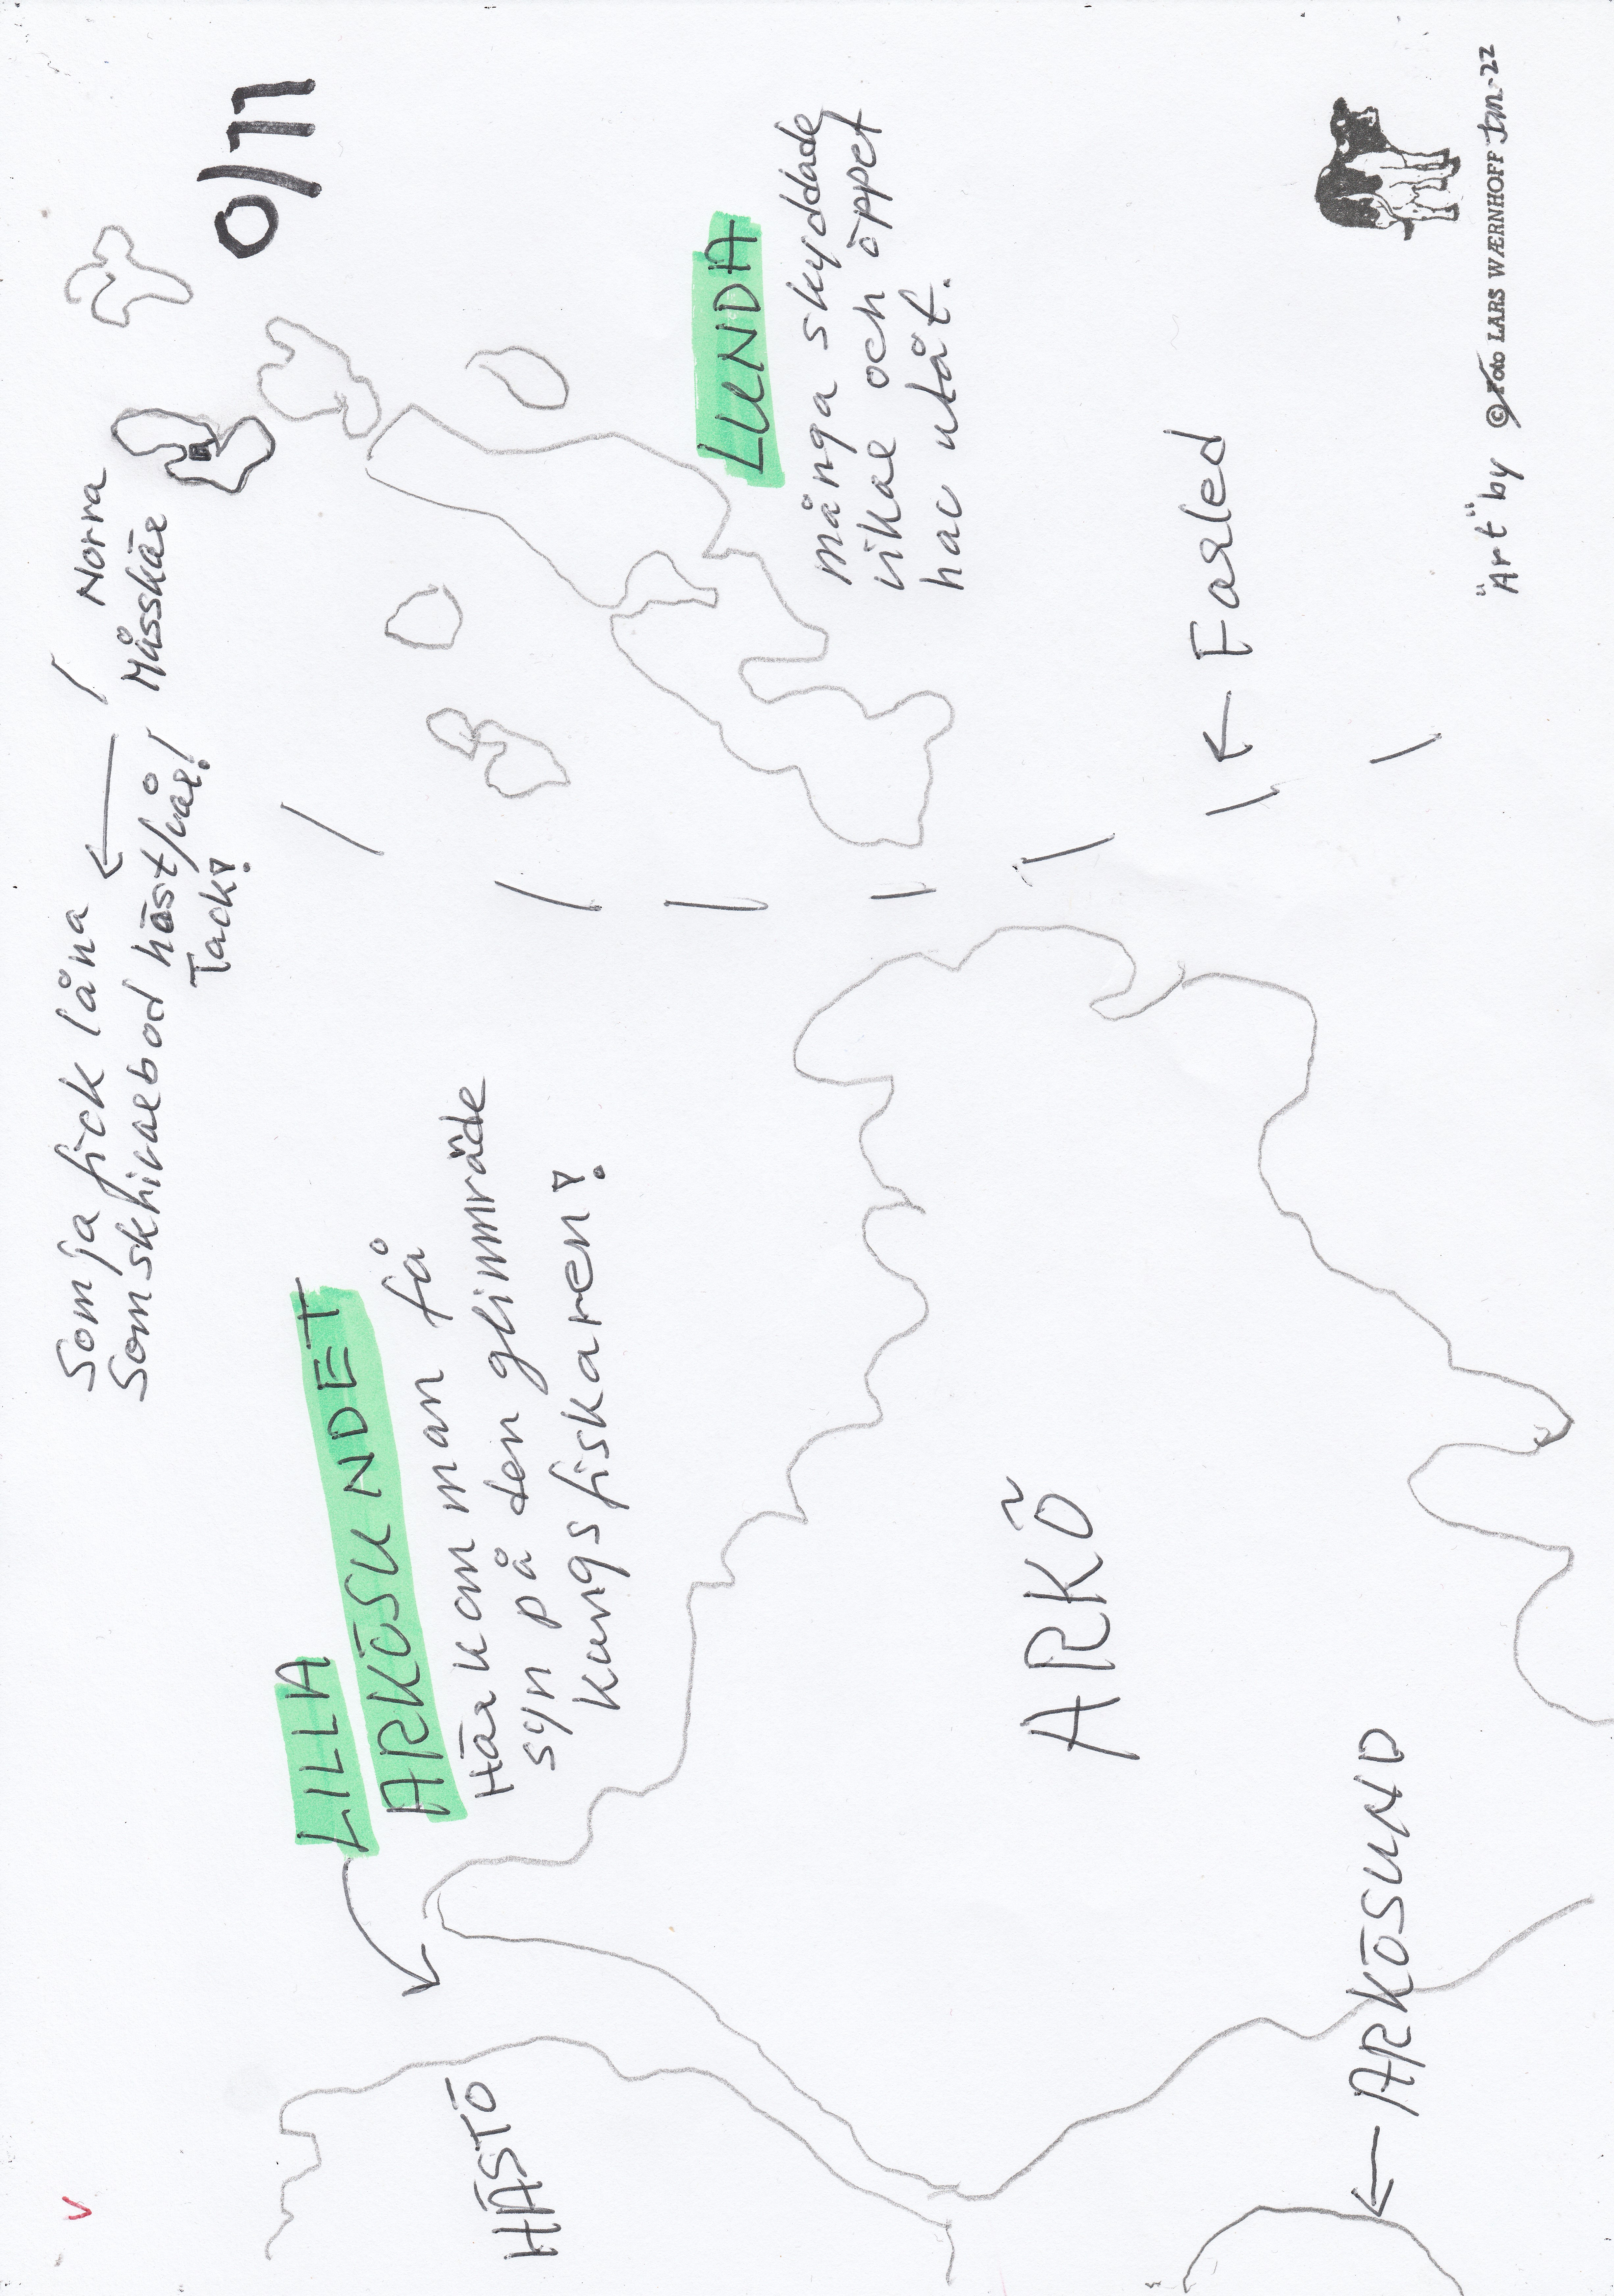 0/11
Som ja fick låna
som skrivarbod höst/vår!
Tack!
Norra
Måsskär
LILLA
ARKÖSUNDET
Här kan man få
syn på den glimrande
kungsfiskaren!
LUNDA
många skyddade
vikar och öppet
hav utåt.
HÄSTÖ
ARKÖ
Farled
ARKÖSUND
"Art" by © Foto LARS WÆRNHOFF Jan-22
V